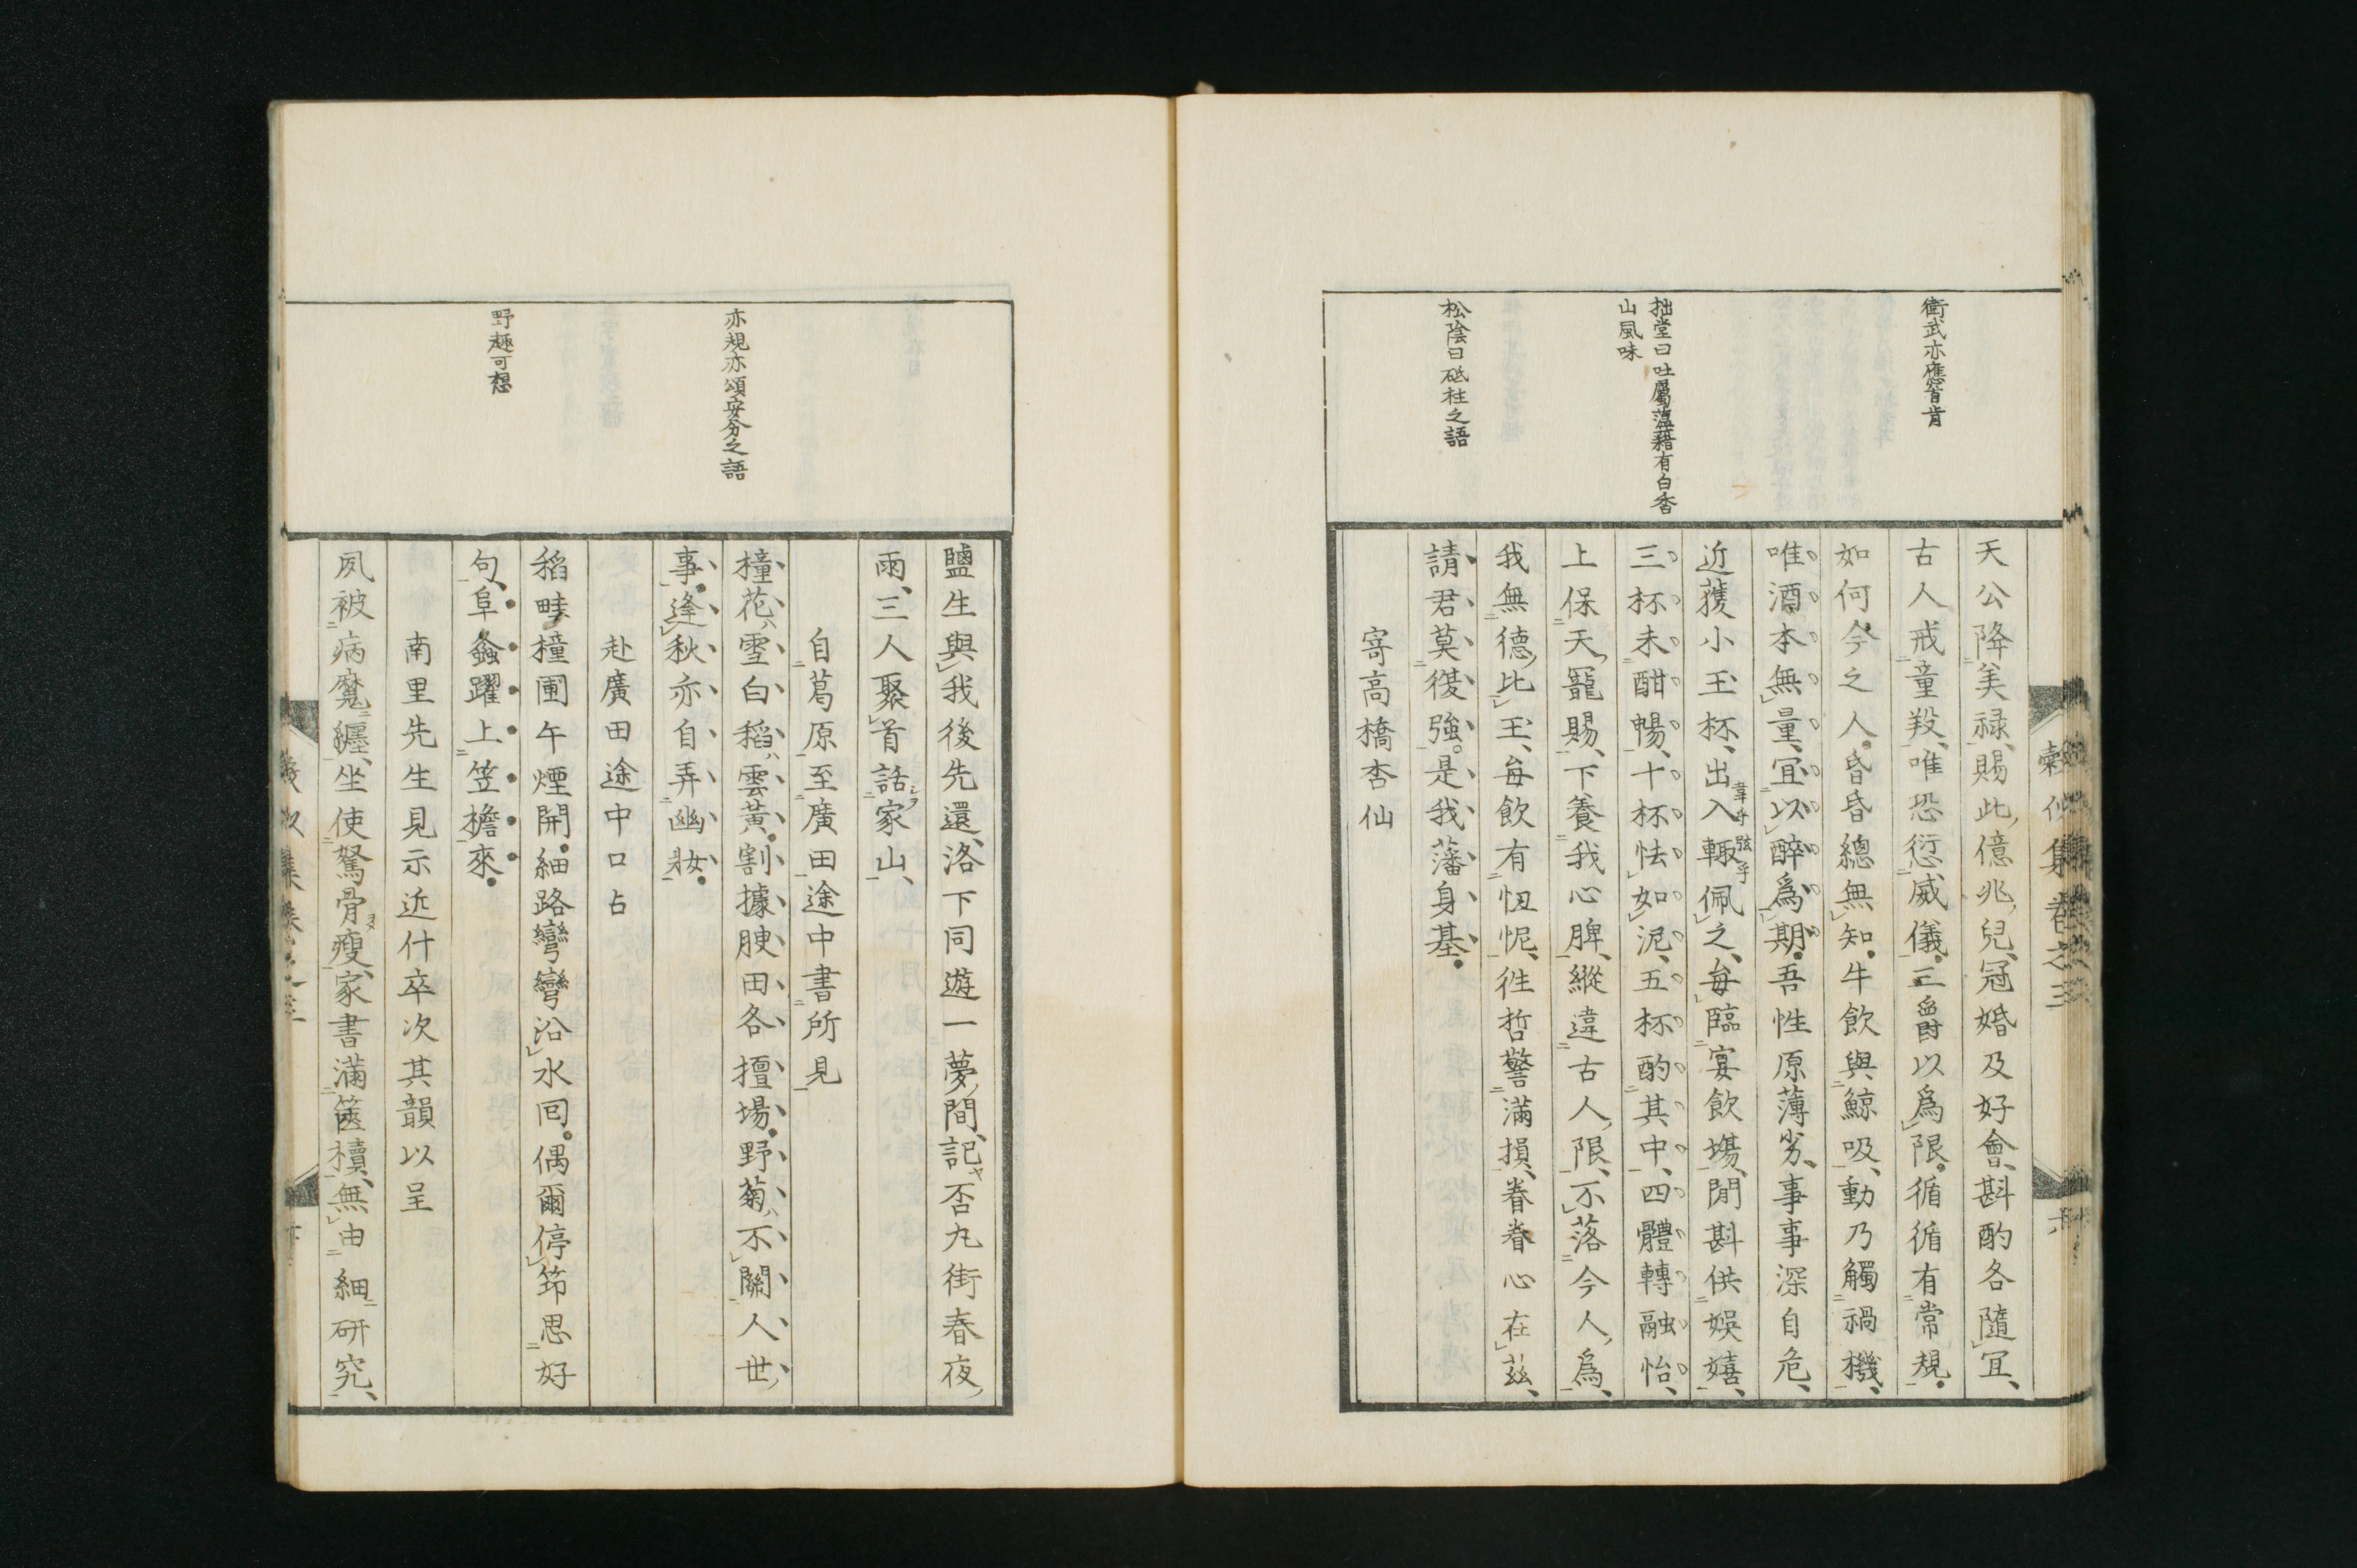 衛武亦應首肯
拙堂曰吐屬薀藉有白香
山風味
松陰曰砥柱之語
天公降美祿、賜此億兆兒、冠婚及好會、斟酌各隨宜、
古人戒童羖、唯恐愆威儀。三爵以爲限。循循有常規。
如何今之人。昏昏總無知。牛飲與鯨吸、動乃觸禍機、
唯酒本無量、宜以醉爲期。吾性原薄劣、事事深自危、
近獲小玉杯、出入輙佩之、每臨宴飲場、閒斟供娛嬉、
韋乎弦乎
三杯未酣暢、十杯怯如泥、五杯酌其中、四體轉融怡、
上保天寵賜、下養我心脾、縱違古人限、不落今人爲、
我無德比玉、每飲有忸怩、徃哲警滿損、眷眷心在茲、
請君莫復強。是我藩身基。
寄高橋杏仙
卷之三
六
亦規亦頌安分之語
野趣可想
鹽生與我後先還、洛下同遊一夢間、記否九街春夜
雨、三人聚首話家山、
自葛原至廣田途中書所見
橦花雪白稻雲黃。割據腴田各擅場。野菊不關人世
事。逢秋亦自弄幽妝。
赴廣田途中口占
稻畦橦圃午煙開。細路彎彎沿水回。偶爾停筇思好
句、阜螽躍上笠檐來。
南里先生見示近什卒次其韻以呈
夙被病魔纒、坐使駑骨瘦、家書滿篋櫝、無由細研究、